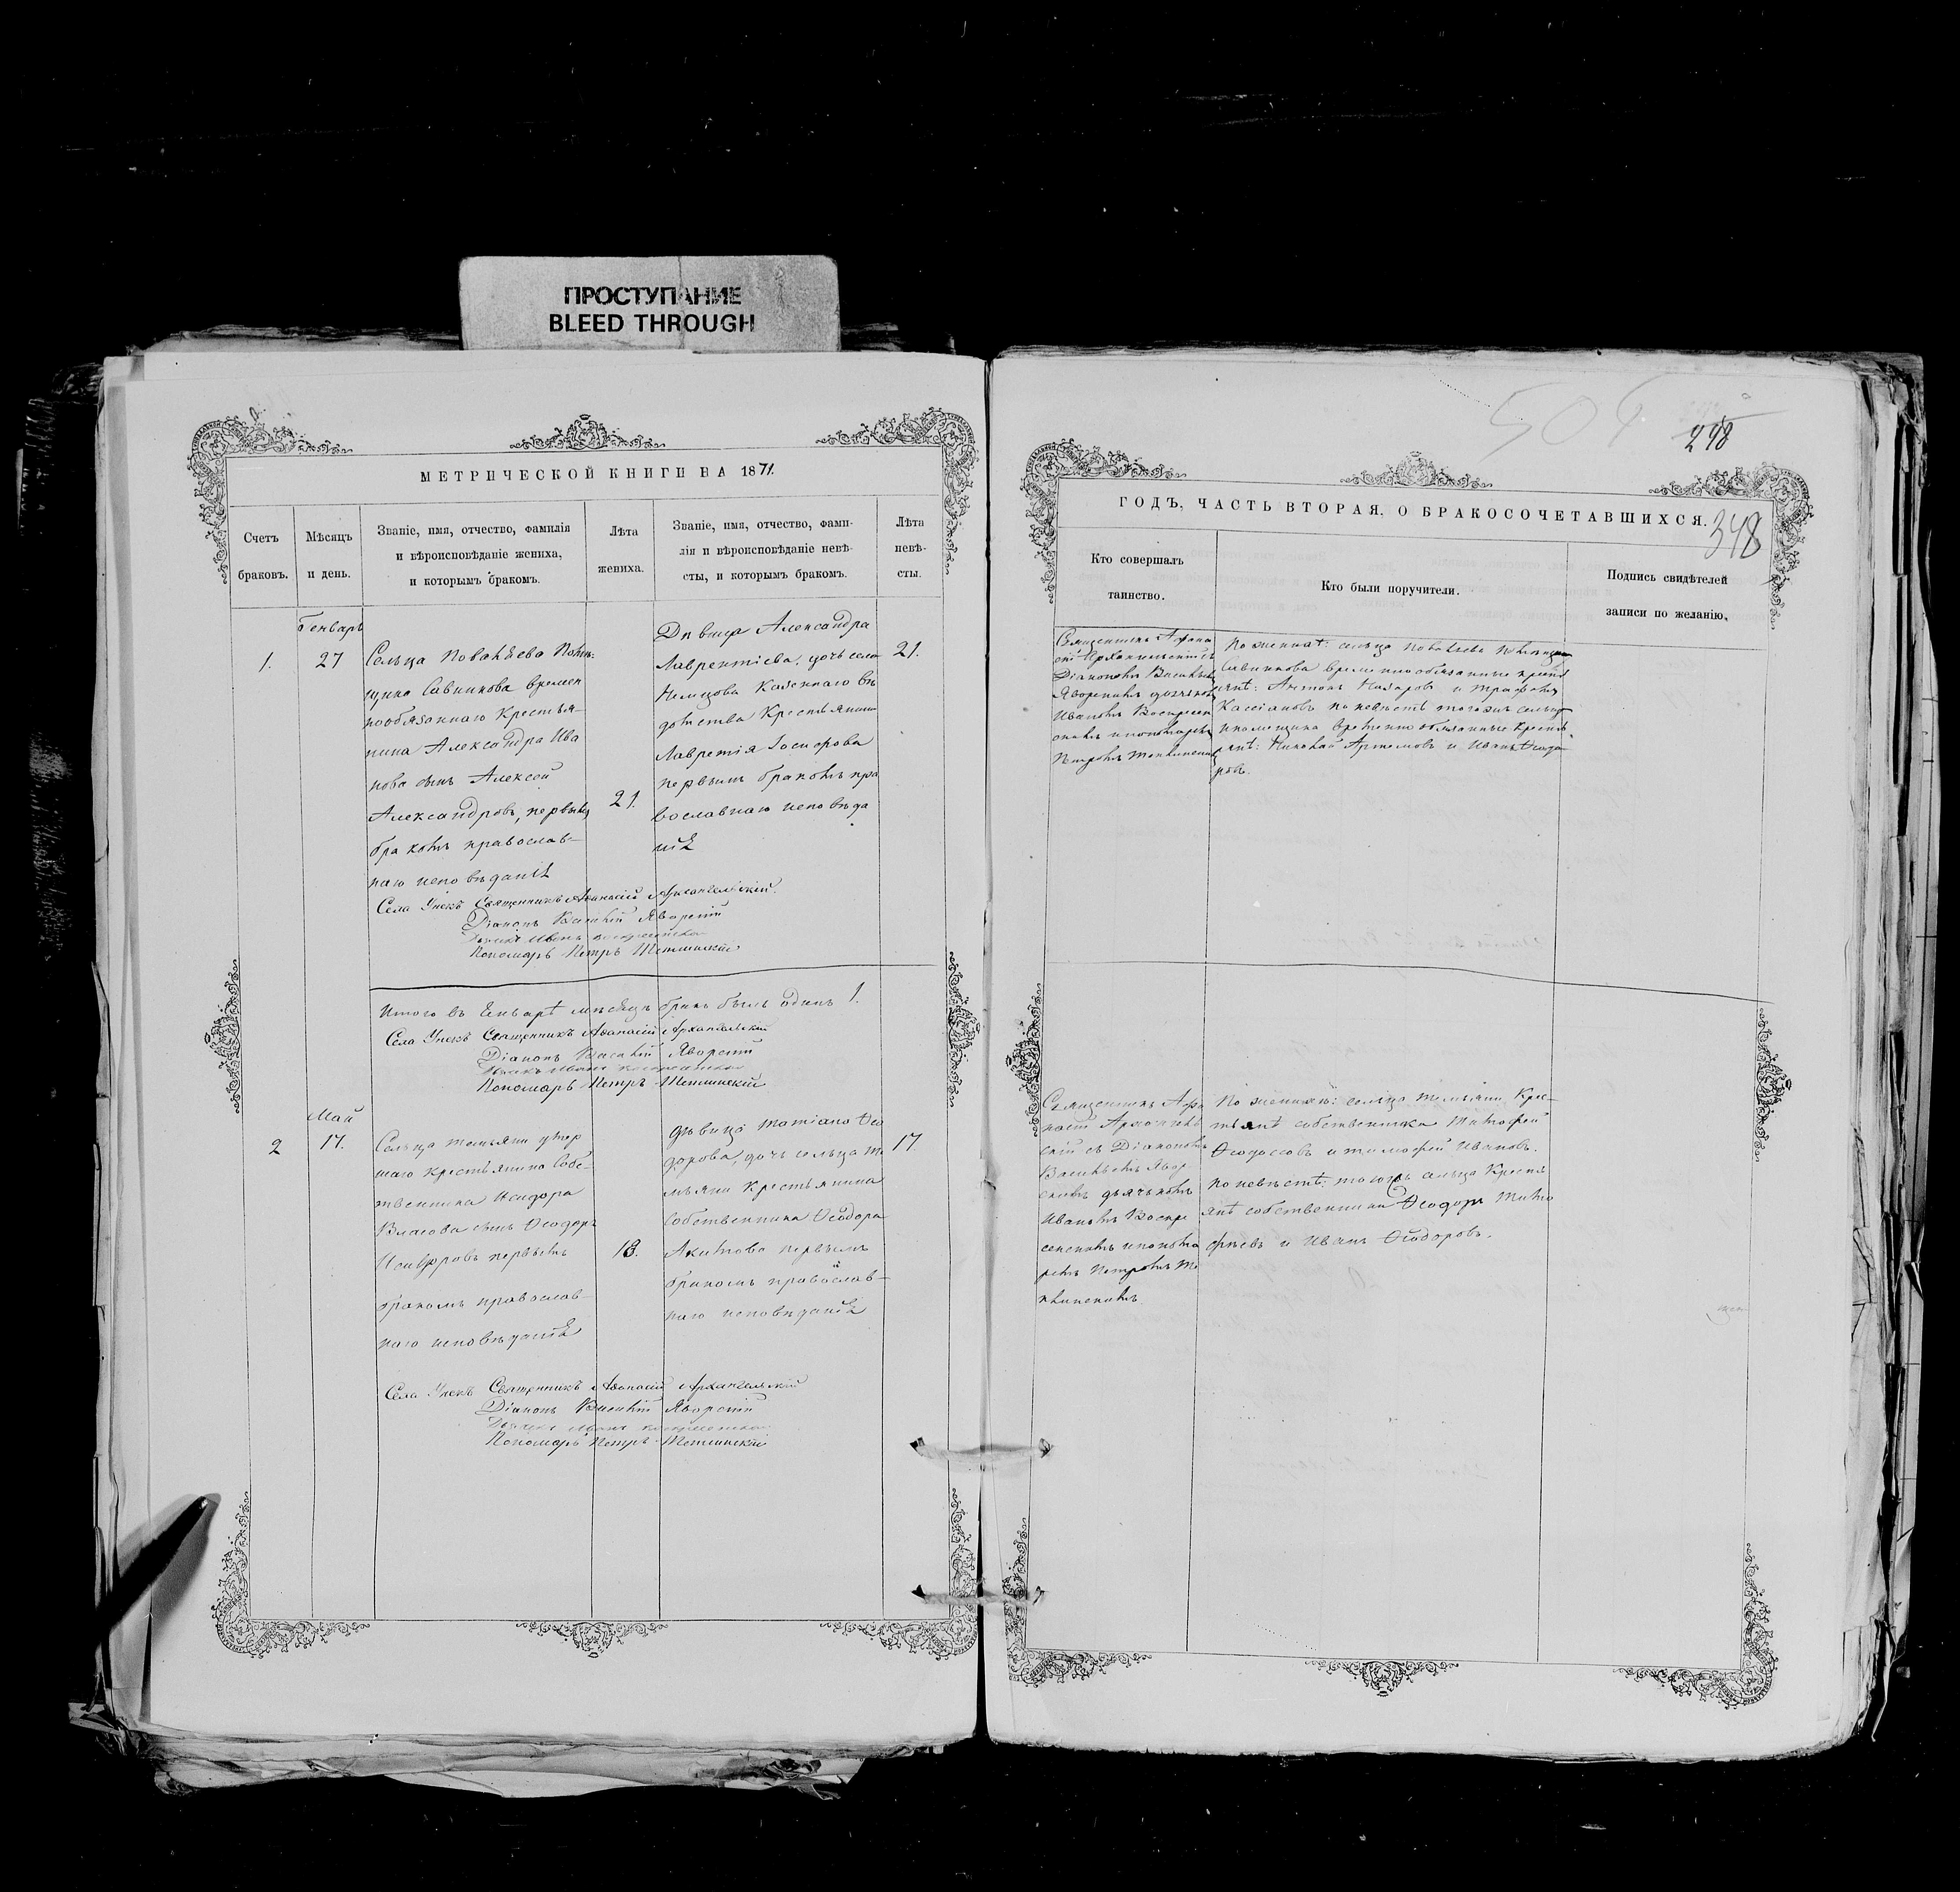 ПРОСТУПАНИЕ
BLEED THROUGH
МЕТРИЧЕСКОЙ КНИГИ НА 1871.
Счетъ браковъ.
Мѣсяцъ и день.
Званіе, имя, отчество, фамилія
и вѣроисповѣданіе жениха,
и которымъ бракомъ.
Лѣта
жениха.
Званіе, имя, отчество, фами-
лія и вѣроисповѣданіе невѣ-
сты, и которымъ бракомъ.
Лѣта
невѣ-
сты.
1.
Генварь
27
Сельца
Савинкова времен
нообязаннаго Крестья-
нина Александра Ива
нова сынъ Алексей
Александровъ, первымъ
бракомъ православ-
наго исповѣданія
21.
Дѣвица Александра
Лаврентіева, дочь села
Немцова Казеннаго вѣ
домства Крестьянина
Лаврентія
первымъ бракомъ пра
вославнаго исповѣда
нія
21.
Села Унекъ Священникъ Аѳанасій Архангельскій.
Діаконъ Василій Яворскій
Дьячекъ Иванъ Воскресенскій
Пономарь Петръ
Итого въ Генварѣ мѣсяцѣ бракъ былъ одинъ 1.
Села Унекъ Священникъ Аѳанасій Архангельскій
Діаконъ Василій Яворскій
Дьячекъ Иванъ Воскресенскій
Пономарь Петръ
2
Май
17.
Сельца умер
шаго крестьянина Собс-
твенника Исидора
Власова сынъ Ѳеодоръ
Исидоровъ первымъ
бракомъ православ-
наго исповѣданія
18.
дѣвица Татіана Ѳео
дорова, дочь сельца
Крестьянина
Собственника Ѳеодора
Акимова первымъ
бракомъ православ-
наго исповѣданія
17.
Села Унекъ Священникъ Аѳанасій Архангельскій
Діаконъ Василій Яворскій
Дьячекъ Иванъ Воскресенскій
Пономарь Петръ
506
248
348
ГОДЪ, ЧАСТЬ ВТОРАЯ, О БРАКОСОЧЕТАВШИХСЯ.
Кто совершалъ
таинство.
Кто были поручители.
Подпись свидѣтелей
записи по желанію.
Священникъ Аѳана
сій Архангельскій съ
Діакономъ Василіемъ
Яворскимъ дьячкомъ
Иваномъ Воскресен
скимъ и пономаремъ
Петромъ
По женихѣ: сельца помещика
Савинкова временнообязанные крест
яне: Антонъ Назаровъ и Трофимъ
Кассіановъ по невѣстѣ тогожъ сельца
и помещика временнообязанные крест
яне: Николай Артемовъ и Иванъ Ѳеодо
ровъ.
Священникъ Аѳа
насій Архангель
скій съ Діакономъ
Василіемъ Явор
скимъ дьячкомъ
Иваномъ Воскре
сенскимъ и понома
ремъ Петромъ
По женихѣ: сельца Кре-
стьяне собственники
Ѳеодосовъ и Тимофей Ивановъ.
по невѣстѣ: тогожъ сельца Кресть
яне собственники Ѳеодоръ Тимо
фѣевъ и Иванъ Ѳеодоровъ.